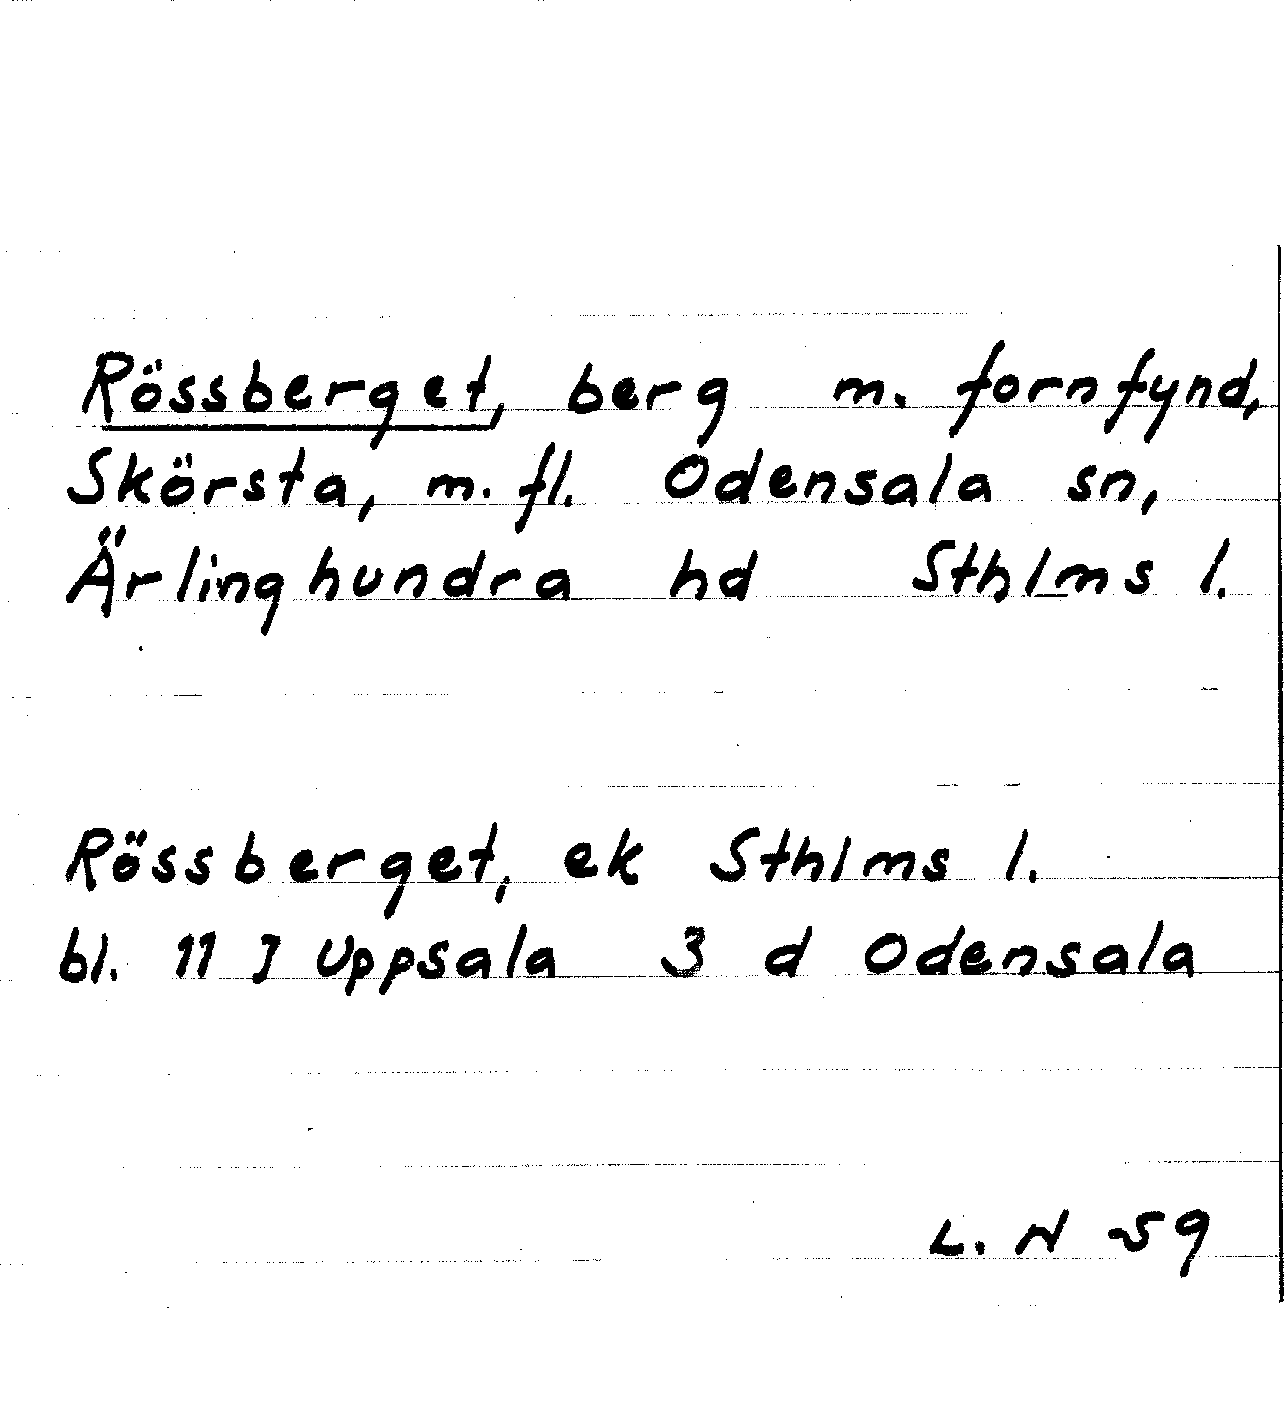 Rössberget, berg m. fornfynd,
Skörsta, m. fl. Odensala sn,
Ärlinghundra hd Sthlms l.
Rössberget, ek Sthlms l.
bl. 11 J Uppsala 3 d Odensala
L. N 59